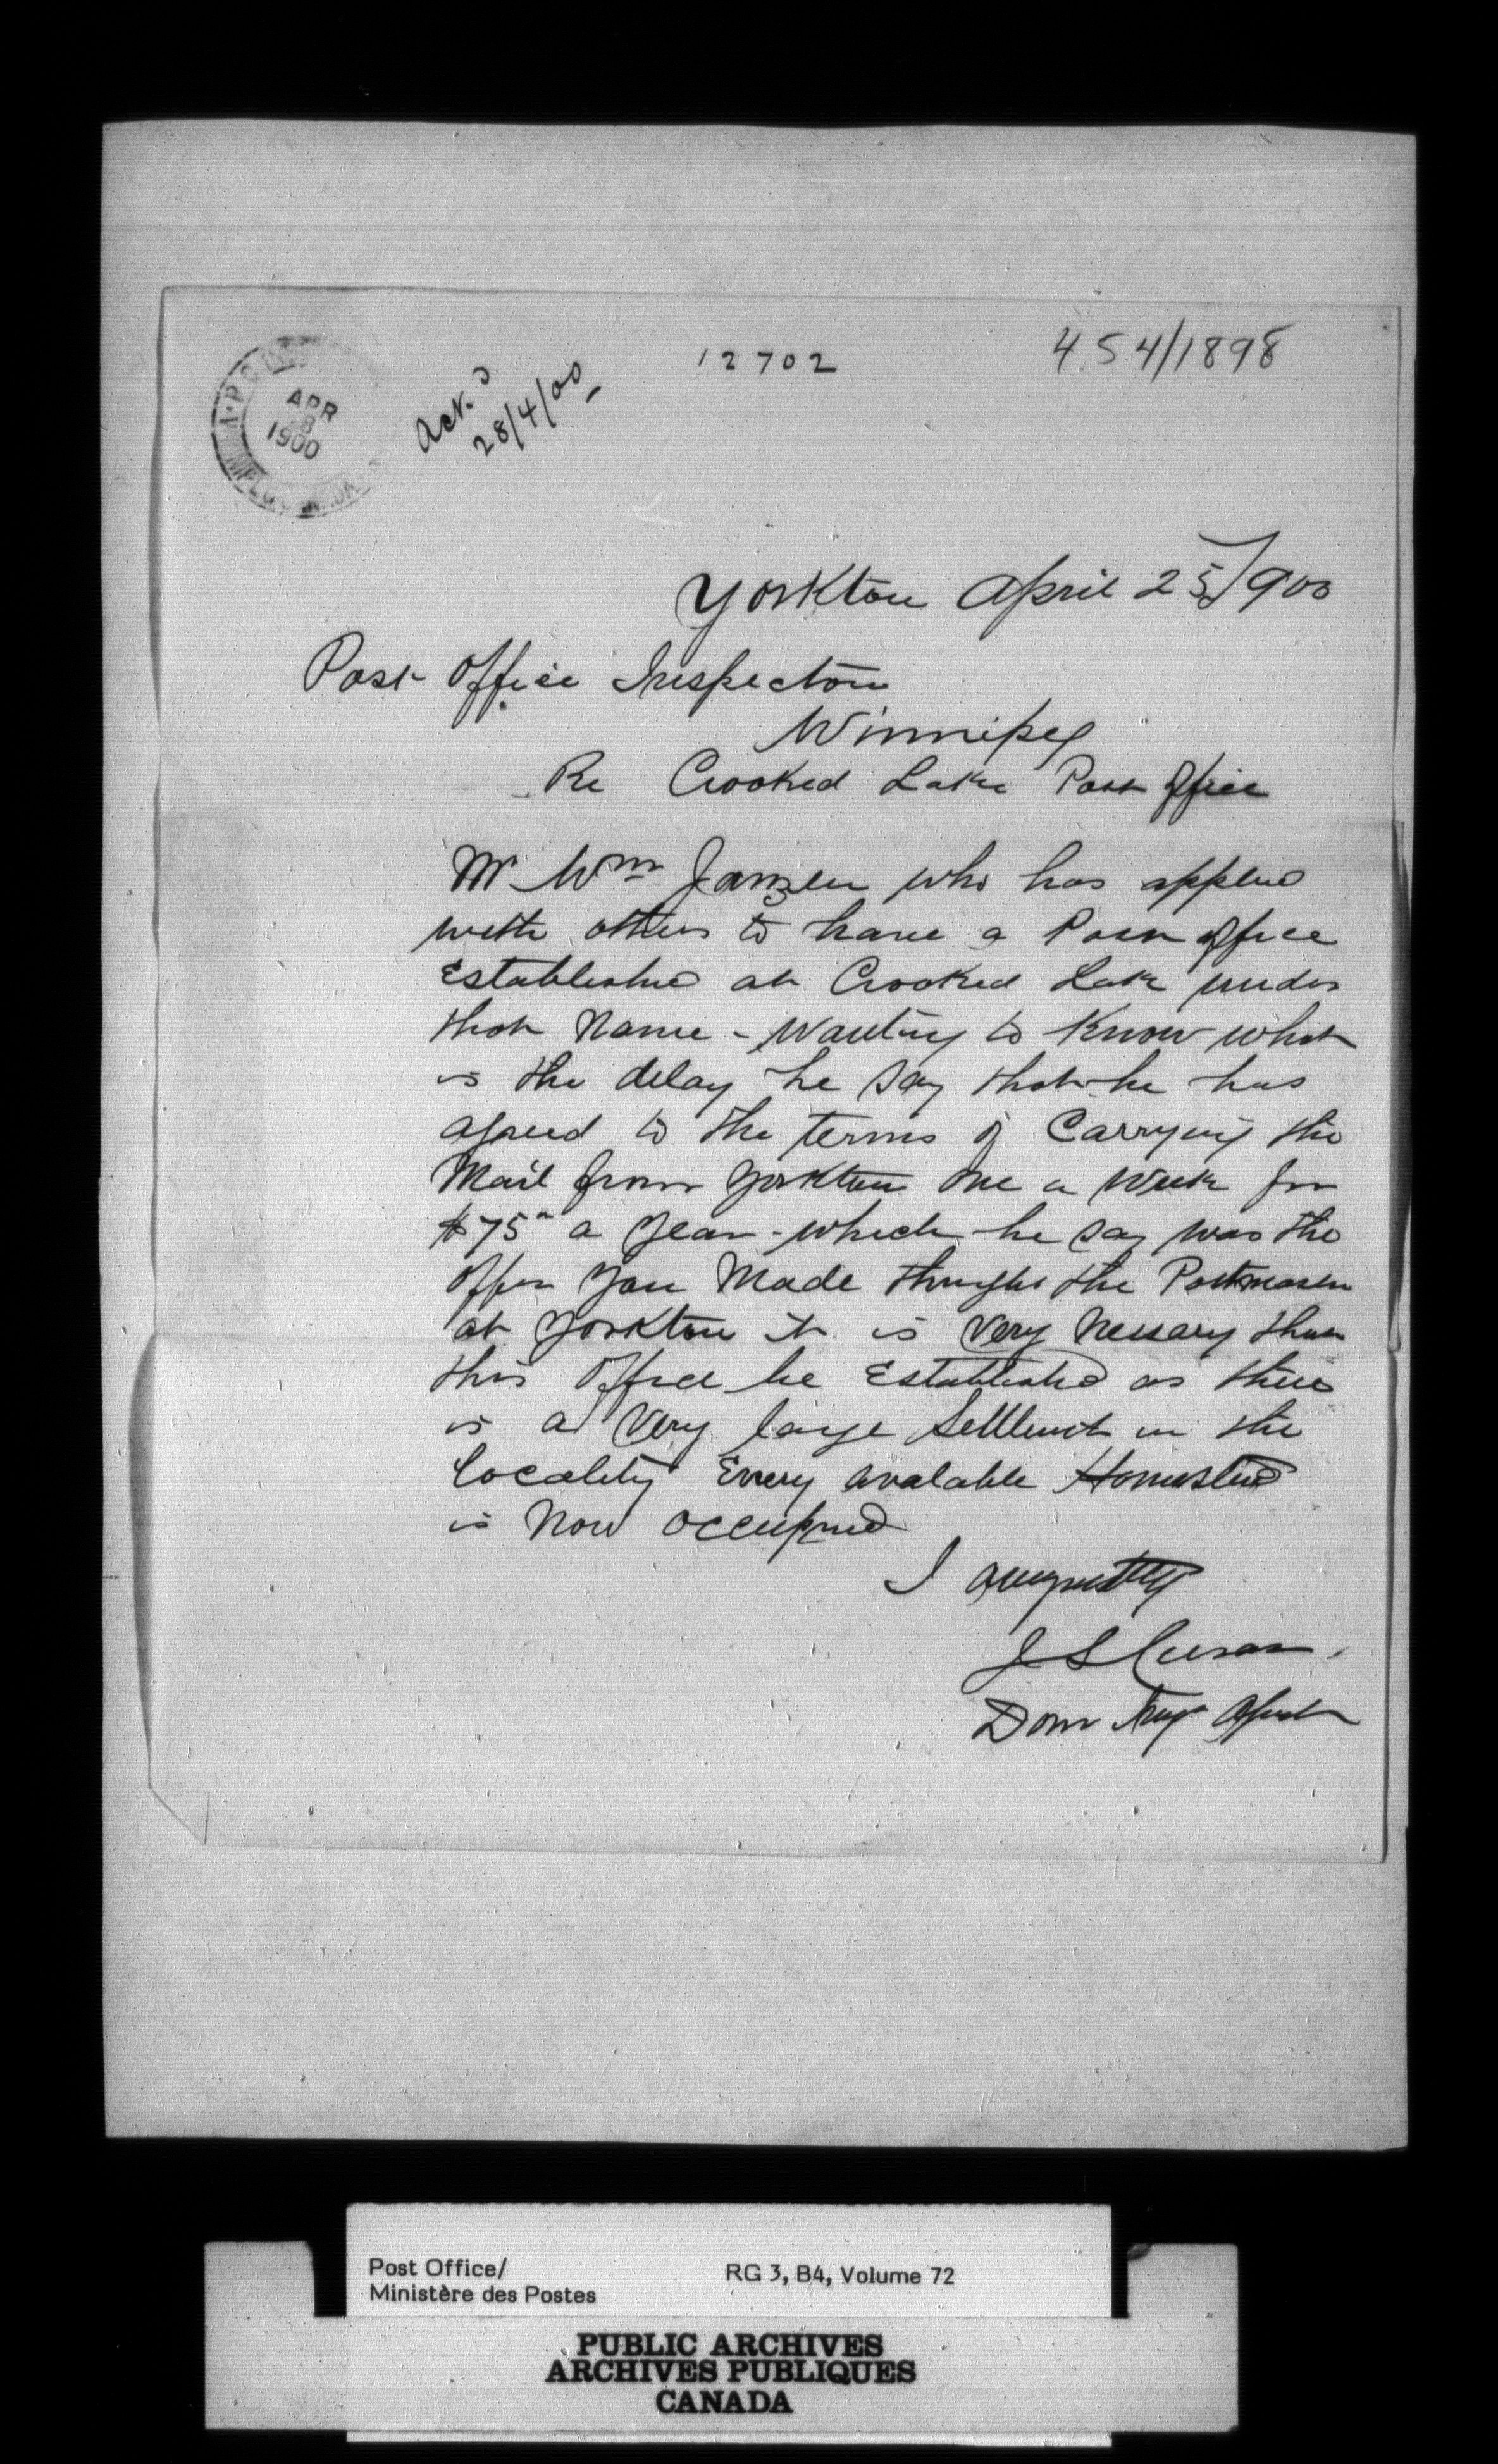 12702
454/1898
APR
28
1900
Ack.d
28/4/00
Yorkton April 25/900
Post Office Inspector
Winnipeg
Re Crooked Lake Post Office
Mr Wm Janzen who has applied
with others to have a Post Office
Established at Crooked Lake under
that Name - Wanting to Know what
is the delay he say that he has
agreed to the terms of Carrying the
Mail from Yorkton one a Week for
$75 a year - which he say was the
offer you Made through the Postmaster
at Yorkton it is Very Nessary that
this Office be Established as there
is a Very large Settlement in the
locality Every avalable Homestead
is Now occupied
I am
J S
Dom Agent
Post Office/
Ministère des Postes
RG 3, B4, Volume 72
PUBLIC ARCHIVES
ARCHIVES PUBLIQUES
CANADA